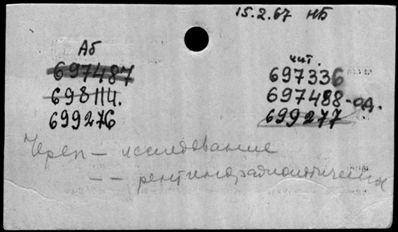 15.2.67 НБ
Аб
697487
698114.
699276
чит.
697336
697488-од.
699277
Череп – исследование
– – рентгенорадиологическое